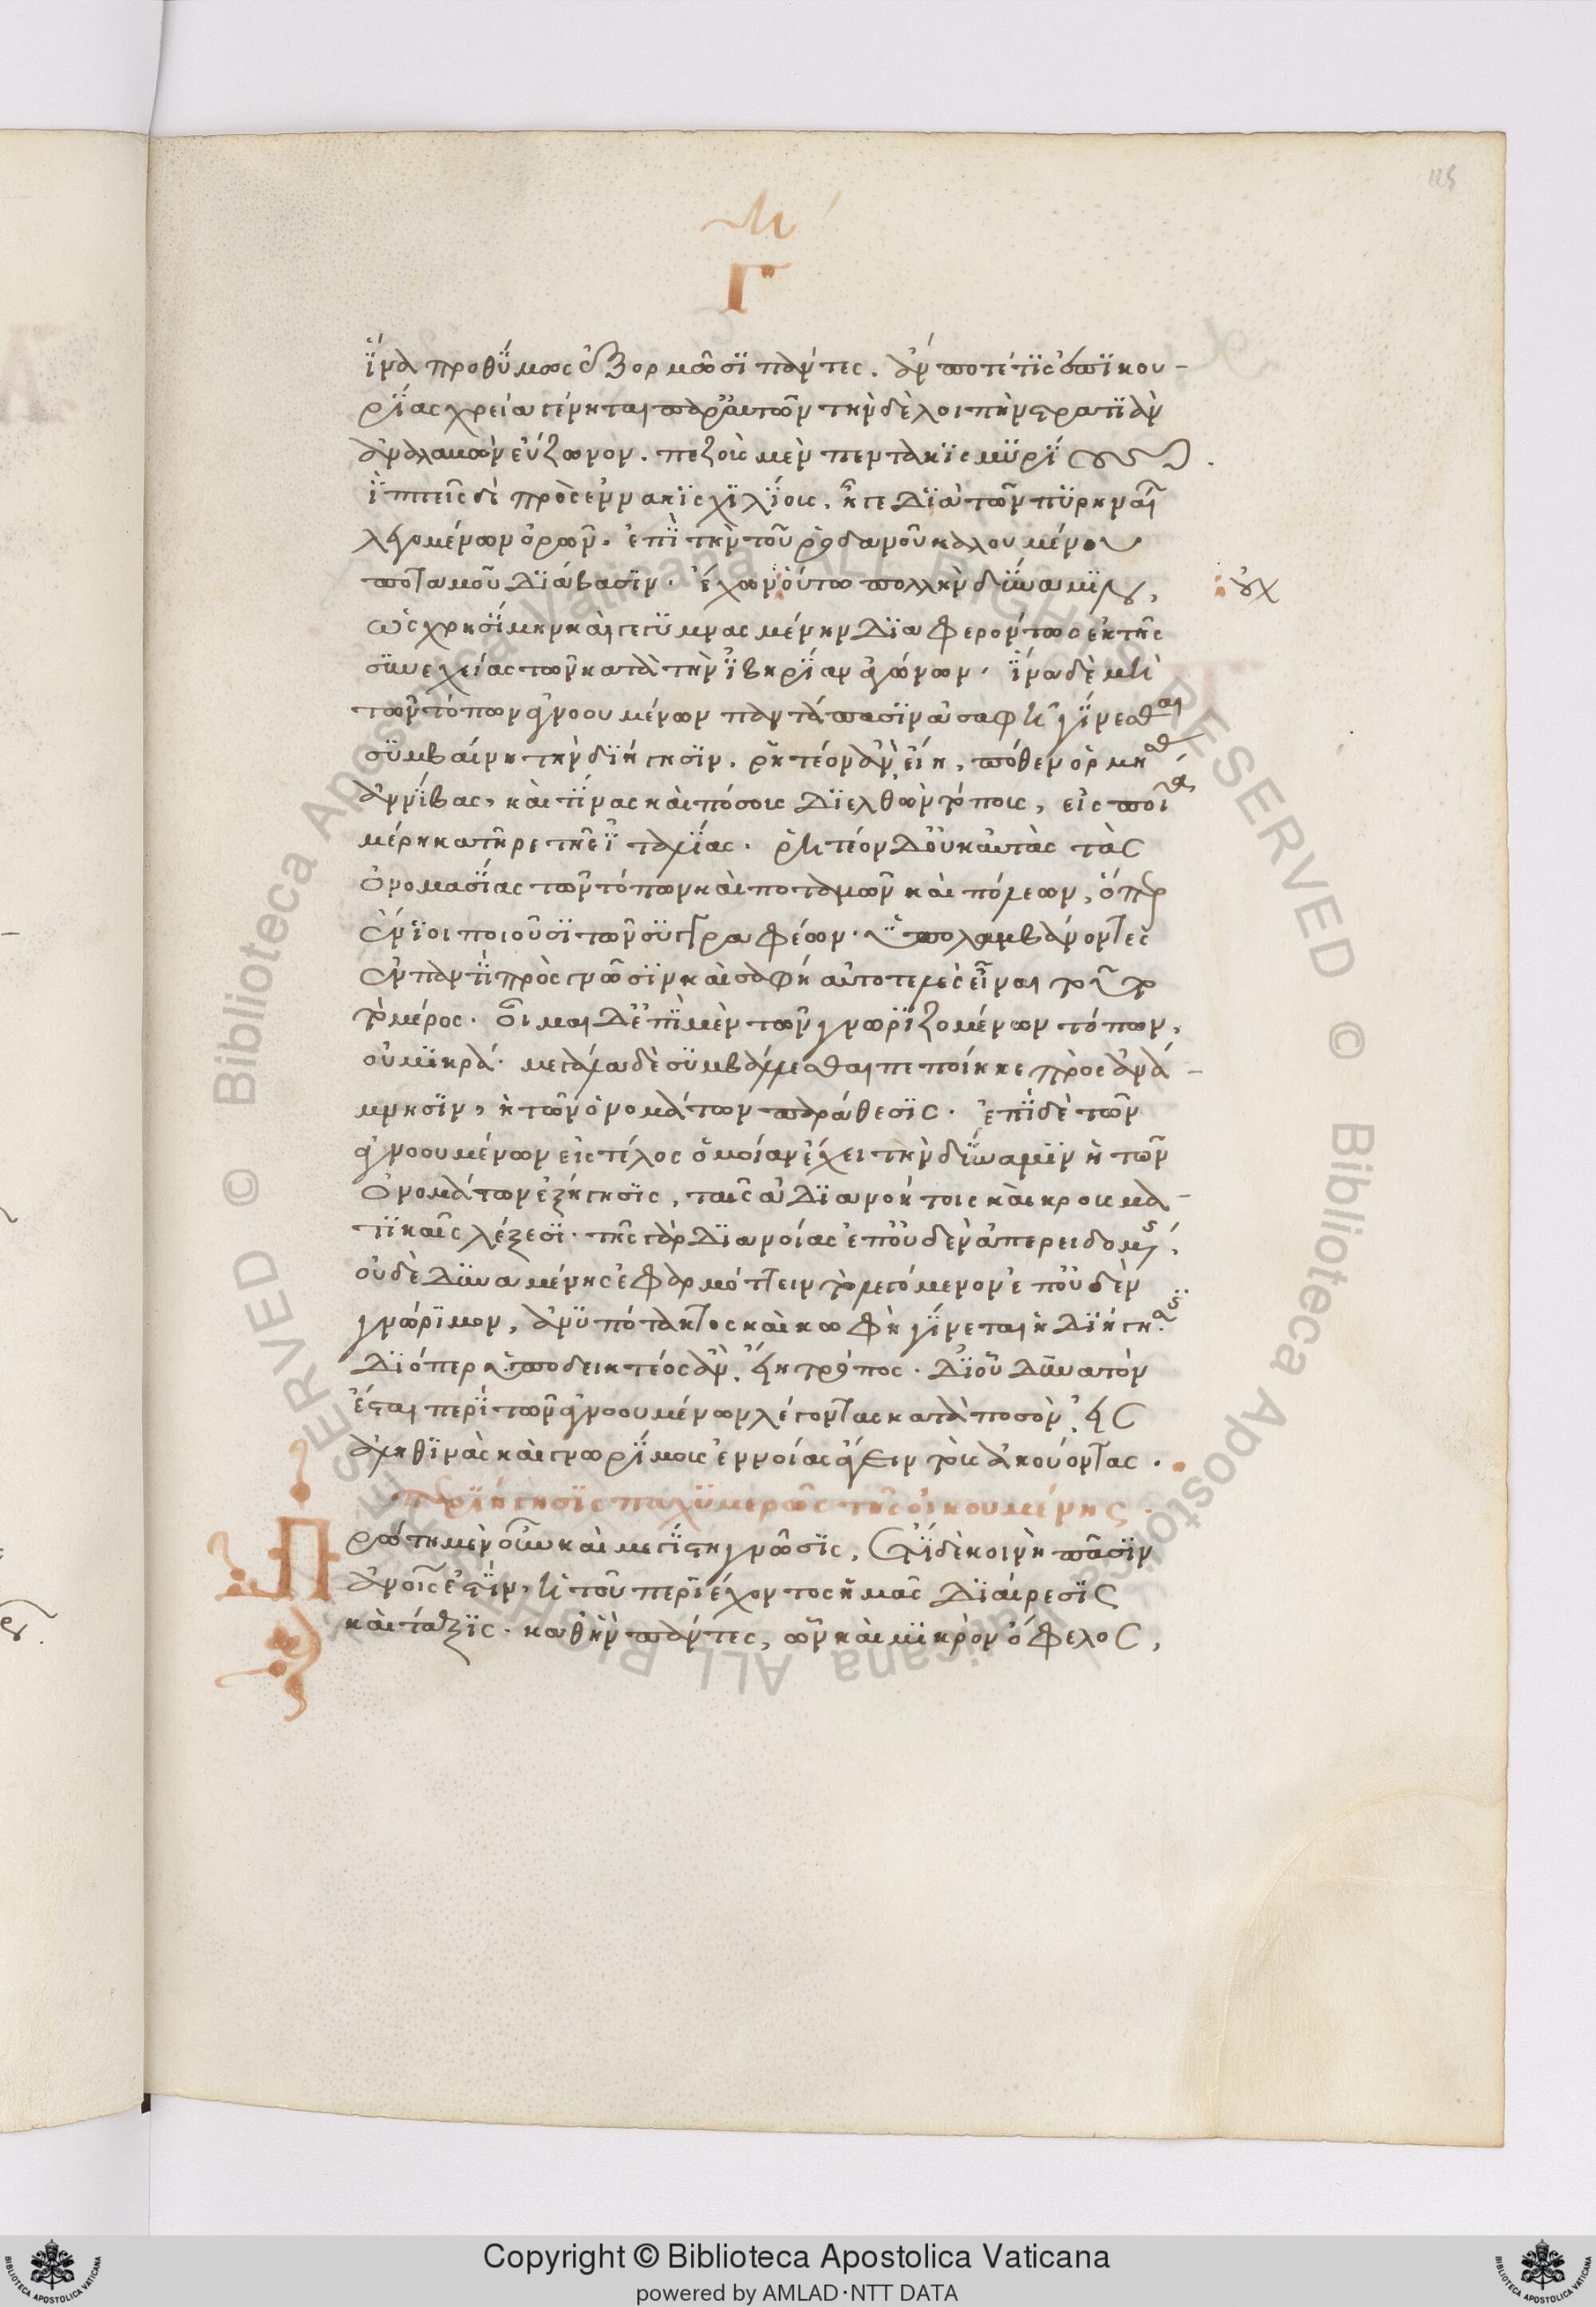 115
η´
Γ
ἵνα προθύμως ἐξορμῶσι πάντες. ἄν ποτέ τις ἐπικου-
ρίας χρεία γένηται παρ' αὐτῶν τὴν δὲ λοιπὴν στρατιὰν
ἀναλαβὼν εὔζωνον. πεζοὺς μὲν πεντακισμυρίους.
ἱππεῖς δὲ πρὸς ἐννακισχιλίους. ἦγε διὰ τῶν πυρηναί
λεγομένων ὀρῶν. ἐπὶ τὴν τοῦ ῥοδανοῦ καλουμένου
ποταμοῦ διάβασιν. ἔχων οὕτω πολλὴν δύναμιν,
οὐχ
ὡς χρησίμην καὶ γεγυμνασμένην διαφερόντως ἐκ τῆς
συνεχείας τῶν κατὰ τὴν ἰβηρίαν ἀγώνων. ἵνα δὲ μὴ
τῶν τόπων ἀγνοουμένων παντάπασιν ἀσαφῆ γίνεσθαι
συμβαίνη τὴν διήγησιν. ῥητέον ἂν εἴη, πόθεν ὁρμηθ
ἀννίβας, καὶ τίνας καὶ πόσους διελθὼν τόπους, εἰς ποῖα
μέρη κατῆρε τῆς ἰταλίας. ῥητέον δ' οὐκ αὐτὰς τὰς
ὀνομασίας τῶν τόπων καὶ ποταμῶν καὶ πόλεων, ὅπερ
ἔνιοι ποιοῦσι τῶν συγγραφέων. ὑπολαμβάνοντες
ἐν παντὶ πρὸς γνῶσιν καὶ σαφή αὐτοτελὲς εἶναι τοῦτο
τὸ μέρος. οἶμαι δ' ἐπὶ μὲν τῶν γνωριζομένων τόπων,
οὐ μικρά. μεγάλα δὲ συμβάλλεσθαι πεποίηκε πρὸς ἀνά-
μνησιν, ἡ τῶν ὀνομάτων παράθεσις. ἐπὶ δὲ τῶν
ἀγνοουμένων εἰς τέλος ὁμοίαν ἔχει τὴν δύναμιν ἡ τῶν
ὀνομάτων ἐξήγησις, ταῖς ἀδιανοήτοις καὶ κρουσμα-
τικαῖς λέξεσι. τῆς γὰρ διανοίας ἐπ' οὐδὲν ἀπερειδομς,
οὐδὲ δυναμένης ἐφαρμόττειν τὸ λεγόμενον ἐπ' οὐδὲν
γνώριμον, ἀνυπότακτος καὶ κωφὴ γίνεται ἡ διήγης.
διόπερ ὑποδεικτέος ἂν εἴη τρόπος. δι' οὗ δυνατὸν
ἔσται περὶ τῶν ἀγνοουμένων λέγοντας κατὰ ποσὸν εἰς
ἀληθινὰς καὶ γνωρίμους ἐννοίας ἄγειν τοὺς ἀκούοντας.
περιήγησις παχυμερῶς τῆς οἰκουμένης.
Πρώτη μὲν οὖν καὶ μεγίστη γνῶσις, ἔτι δὲ κοινὴ πᾶσιν
ἀνοις ἐστίν, ἡ τοῦ περιέχοντος ἡμᾶς διαίρεσις
καὶ τάξις. καθ' ἣν πάντες, ὧν καὶ μικρὸν ὄφελος,
Copyright © Biblioteca Apostolica Vaticana
powered by AMLAD·NTT DATA